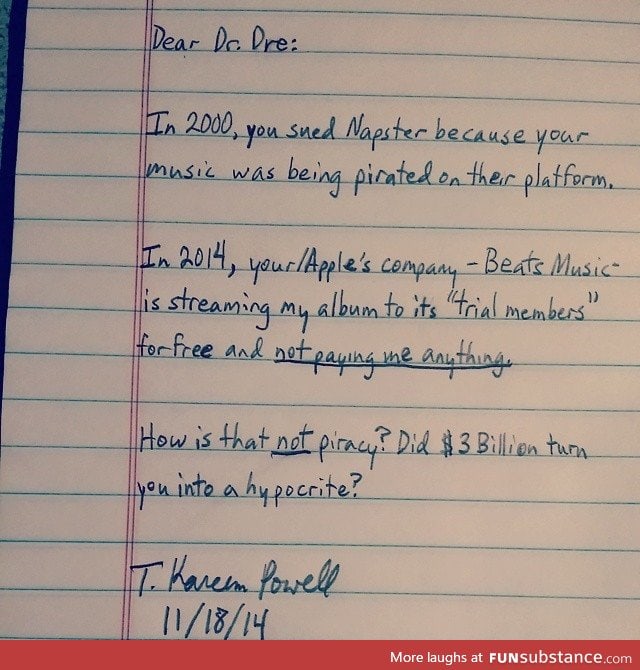 Dear Dr. Dre:
In 2000, you sued Napster because your
music was being pirated on their platform.
In 2014, your/Apple's company - Beats Music -
is streaming my album to its "trial members"
for free and not paying me anything.
How is that not piracy? Did $3 Billion turn
you into a hypocrite?
T. Kareem Powell
11/18/14
More laughs at FUNsubstance.com